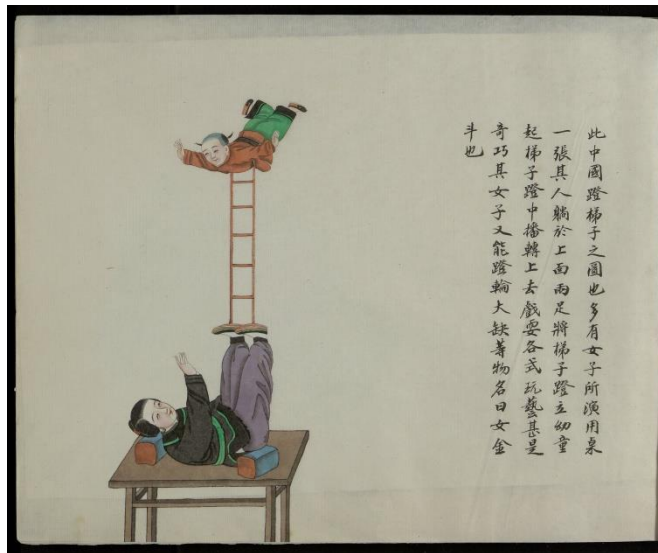 此中國蹬梯子之圖也多有女子所演用桌
一張其人躺於上面兩足將梯子蹬立幼童
起梯子蹬中播轉上去戲耍各式玩藝甚是
奇巧其女子又能蹬輪大缺等物名曰女金
斗也